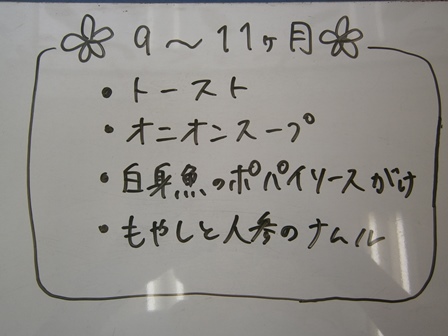 9～11ヶ月
・トースト
・オニオンスープ
・白身魚のポパイソースがけ
・もやしと人参のナムル